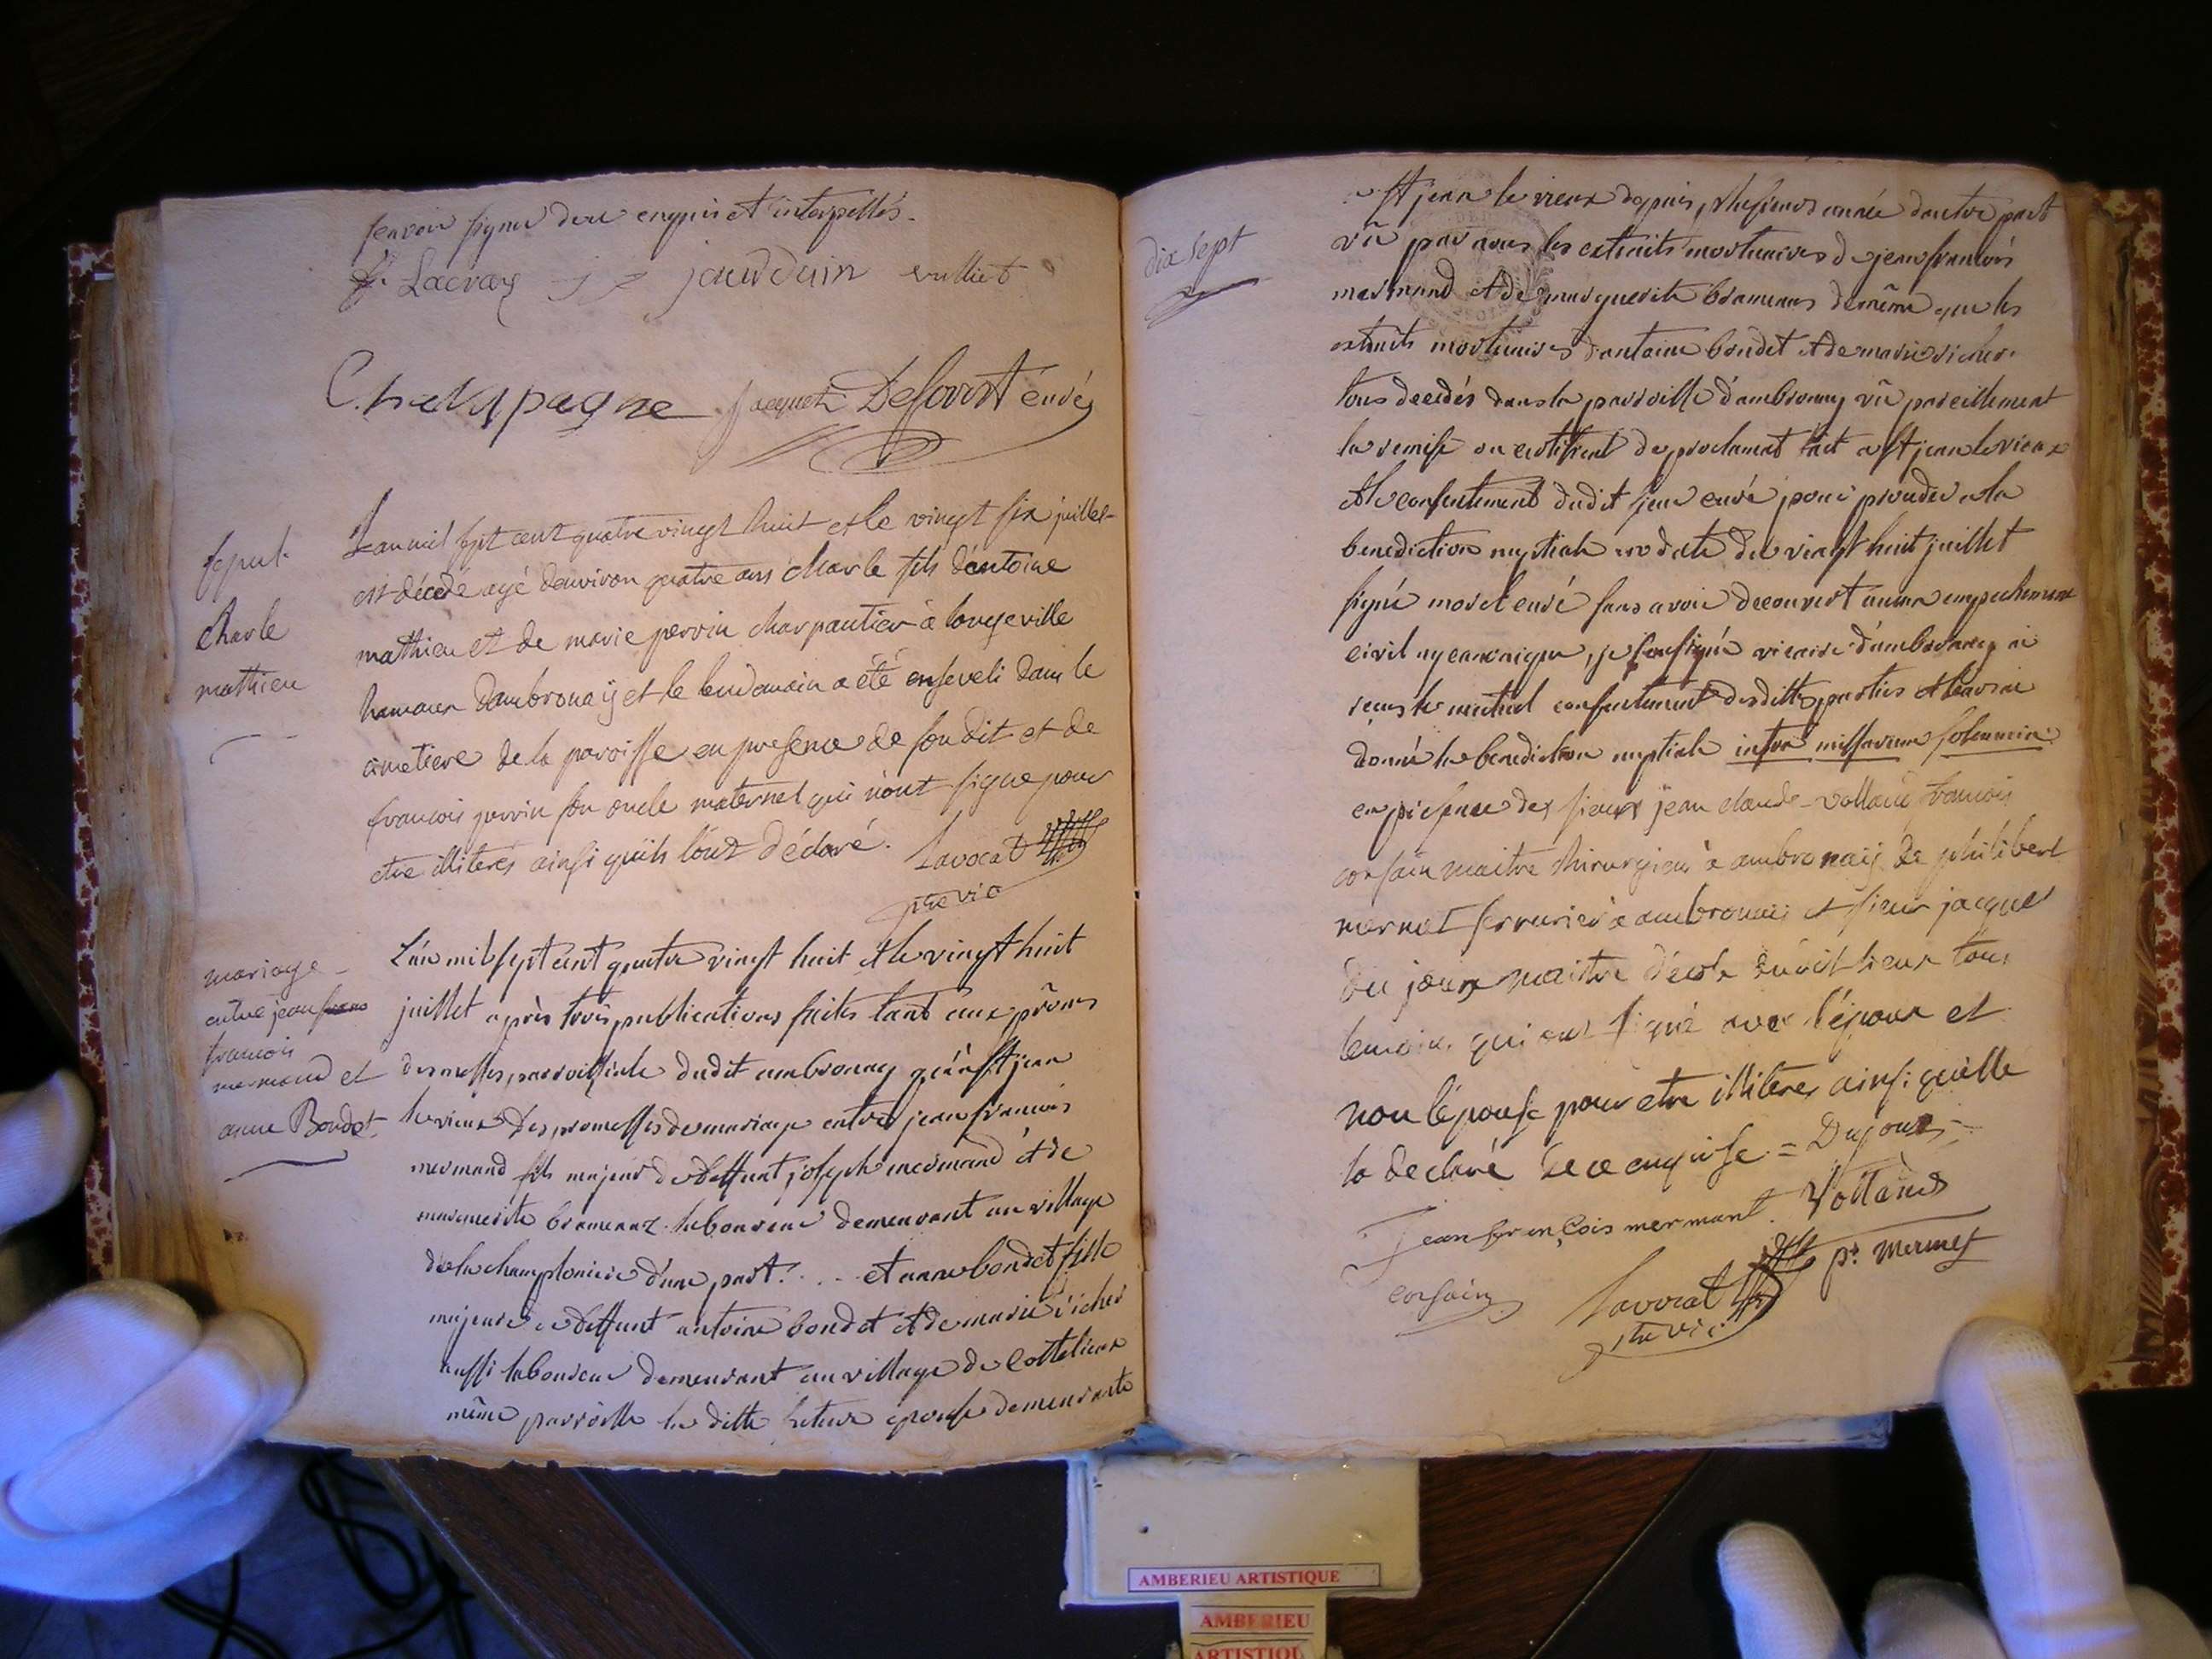 scavoir signer de ce enquis et interpellés.
Lacroix jourdain vulliet
Champagne Jacquet Defovrat curé
sepul.
charle
mathieu
L'an mil sept cent quatre vingt huit et le vingt six juillet
est décédé agé denviron quatre ans charle fils d'antoine
mathieu et de marie perrin charpantier à longeville
hameau dambronaÿ et le lendemain a été enseveli dans le
cimetiere de la paroisse en presence de son dit et de
francois perrin son oncle maternel qui n'ont signe pour
etre illiterés ainsi qu'ils l'ont déclaré. Lavocat
ptre vic
mariage
entre jean
francois
mermand et
anne Bondet
L'an mil sept cent quatre vingt huit et le vingt huit
juillet après trois publications faites tant aux prônes
des messes parroissiale dudit ambronay qu'à st jean
le vieux des promesses de mariage entre jean francois
mermand fils majeur de deffunt joseph mermand et de
marguerite brameraz laboureur demeurant au village
de la champloniere d'une part. . . . et anne bondet fille
majeure de deffunt antoine bondet et de marie richer
aussi laboureur demeurant au village de Cottelieux
même parroisse la ditte future epouse demeurante
dix sept
a st jean le vieux depuis plusieurs année dautre part
vû par nous les extraits mortuaires de jean francois
mermand et de marguerite brameraz de même que les
extraits mortuaires d'antoine bondet et de marie richer
tous decedés dans la parroisse d'ambronay vû pareillement
la remise ou certificat de proclamat fait a st jean le vieux
et le consentement dudit sieur curé pour proceder a la
benediction nuptiale en date du vingt huit juillet
signé morel curé sans avoir decouvert aucun empechement
civil ny canonique, je soussigné vicaire d'ambronay ai
reçus le mutuel consentement desdittes parties et leur ai
donné la benediction nuptiale intra missarum solemnia
en presence des sieurs jean claude vollaud francois
corsain maitre chirurgien à ambronaÿ de philibert
mermet serrurier à ambronaÿ et sieur jacque
du jour maitre d'ecole dudit lieux tous
temoins qui ont signé avec l'époux et
non lépouse pour etre illiteree ainsi quelle
la declaré de ce enquise = Dujour
jean francois mermant. Vollaud
corsain Lavocat pt mermet
ptre vic
AMBERIEU ARTISTIQUE
AMBERIEU
ARTISTIQUE